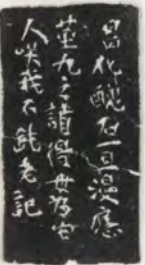 昌化醜石一旦漫應
九之請得毋為
人笑我不鈍老記